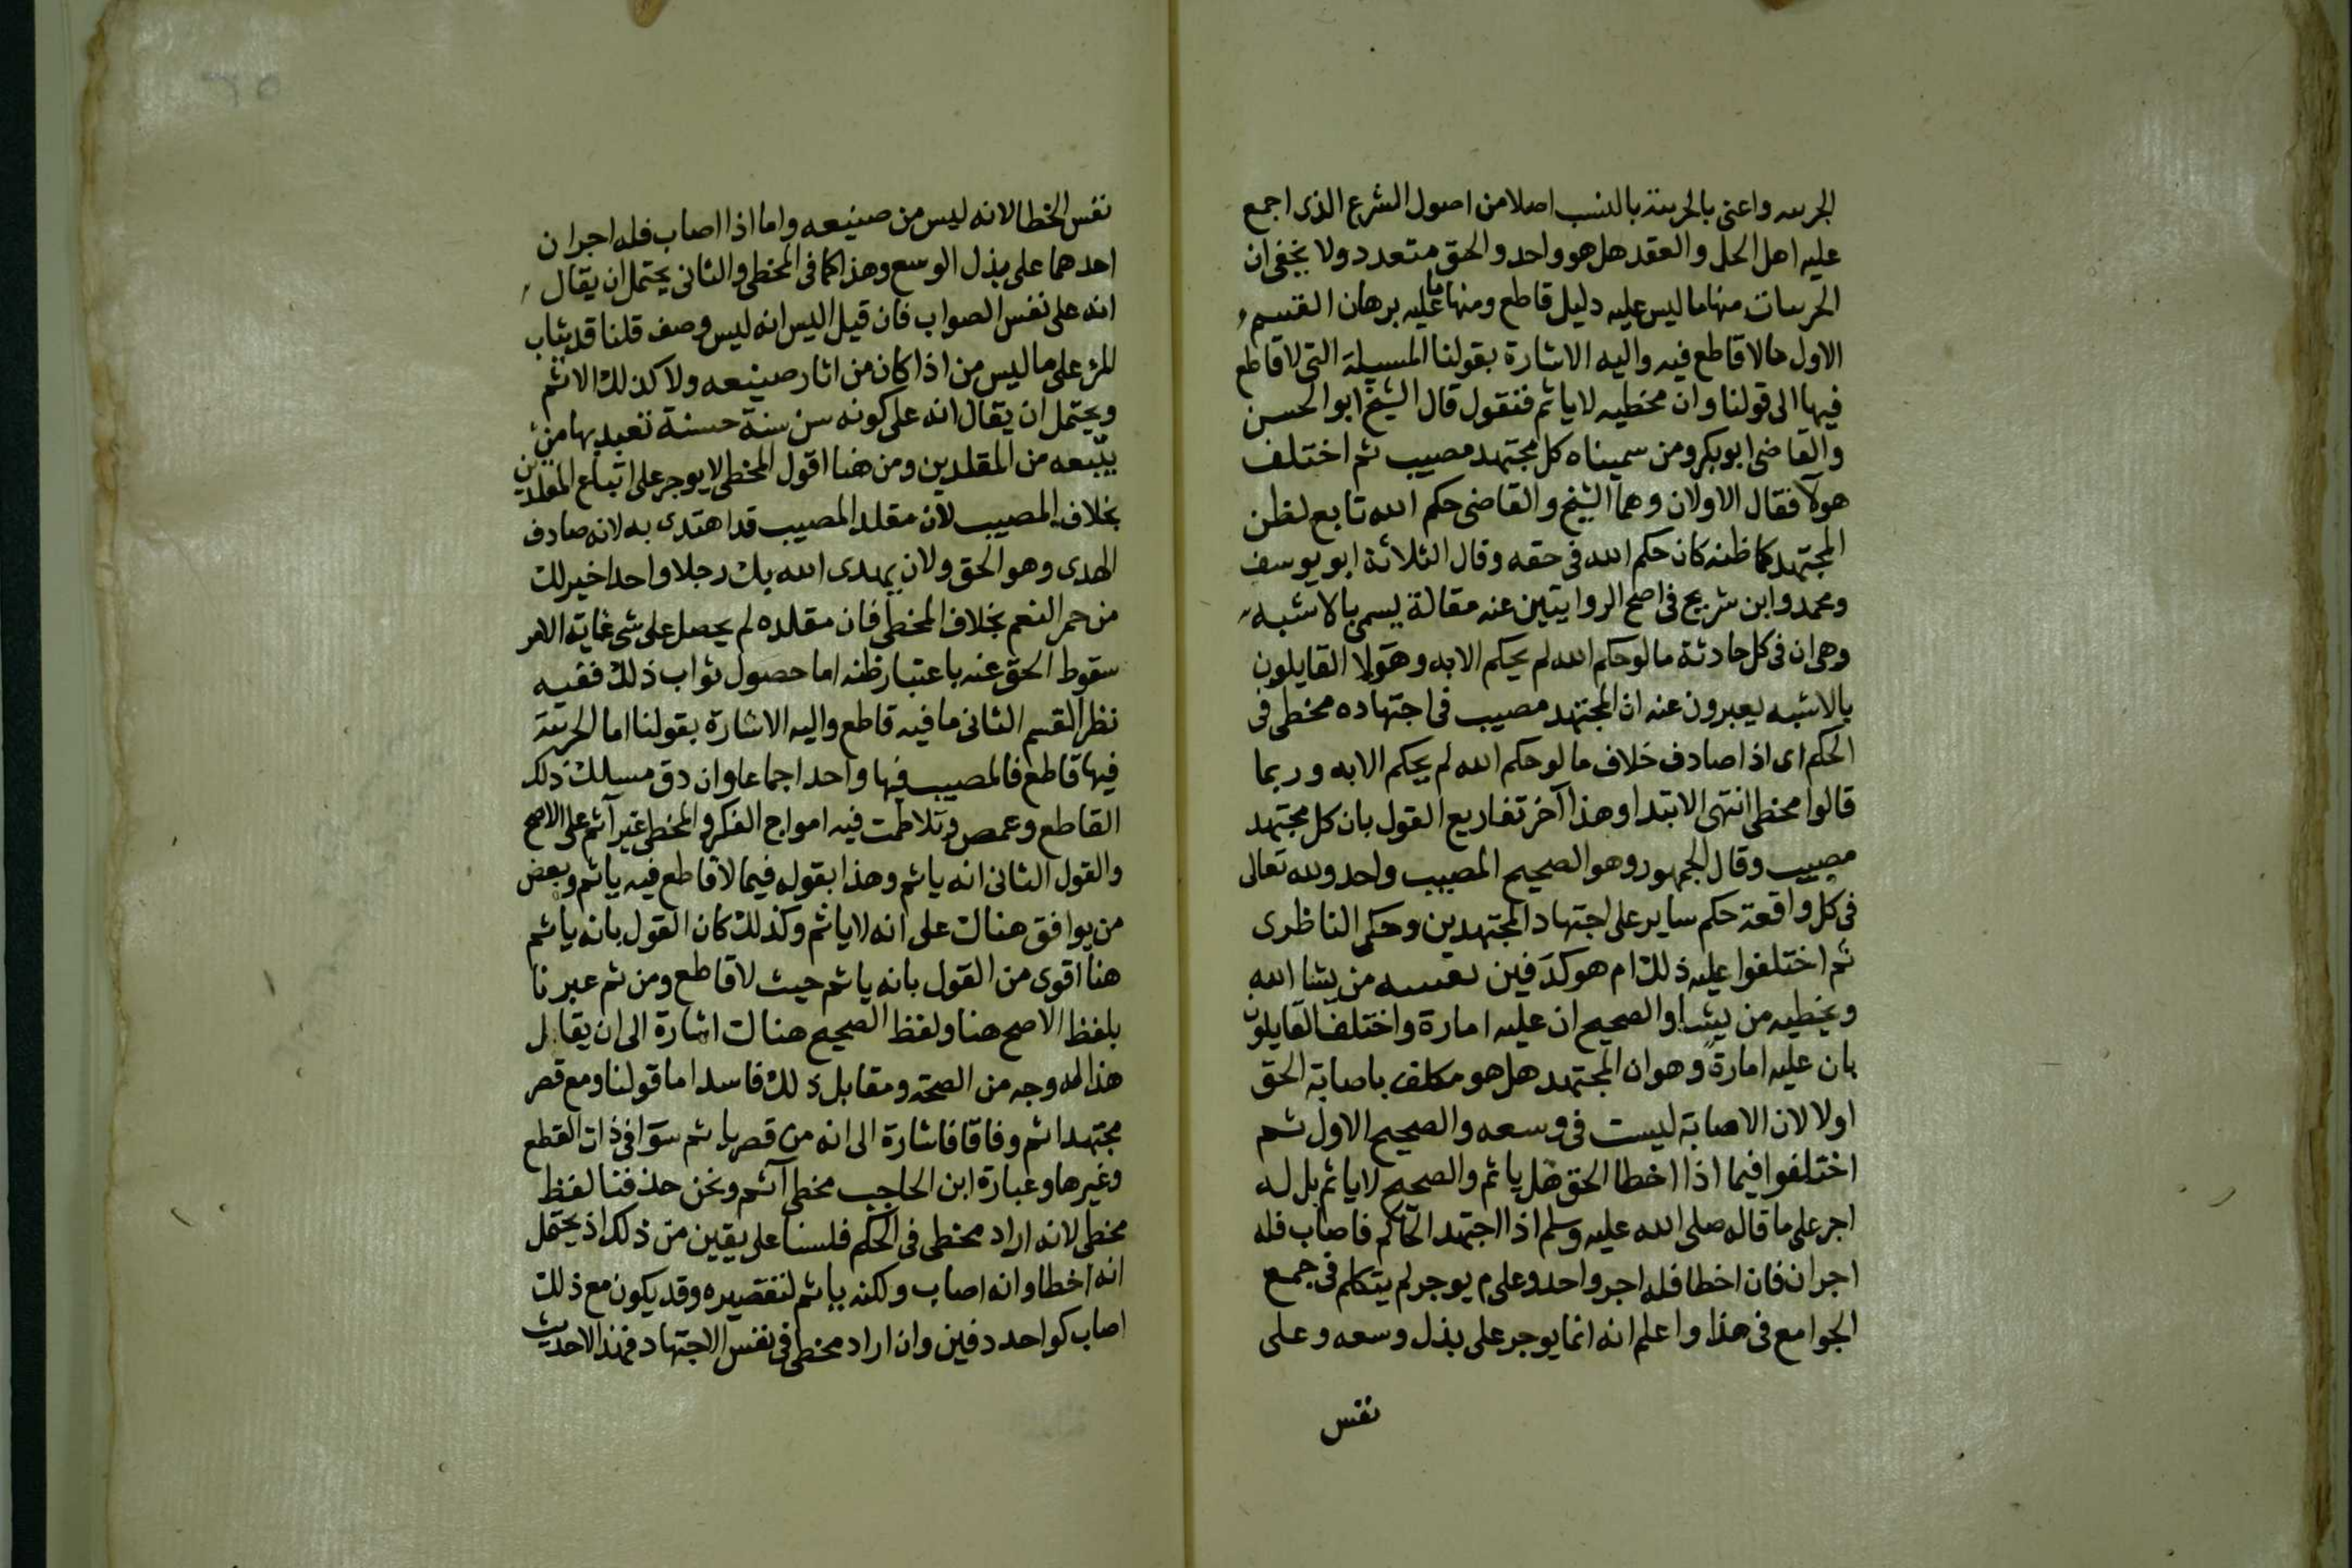 الجرىىه واعنى بالجرىىة بالىسب اصلا من اصول الشرع الذى اجمع
عليه اهل الحل والعقد هل هو واحد والحق متعدد ولا يخفى ان
الحرىىات منها ما ليس عليه دليل قاطع ومنها ما عليه برهان القسم
الاول مالا قاطع فيه واليه الاشارة بقولنا المسيلة التى لا قاطع
فيها الى قولنا وان مخطيه لا ياثم فنقول قال الشيخ ابو الحسن
والقاضى ابو بكر ومن سميناه كل مجتهد مصيب ثم اختلف
هولآ فقال الاولان وهما الشيخ والقاضى حكم الله تابع لظن
المجتهد كما ظنه كان حكم الله فى حقه وقال الثلاثة ابو يوسف
ومحمد وابن شريح فى اصح الروايتين عنه مقالة يسمى بالاشبه
وهى ان فى كل حادثة ما لو حكم الله لم يحكم الا به وهولا القايلون
بالاشبه يعبرون عنه ان المجتهد مصيب فى اجتهاده مخطى فى
الحكم اى اذا صادف خلاف ما لو حكم الله لم يحكم الا به وربما
قالوا مخطى انتهى الابتدا وهذا آخر تفاريع القول بان كل مجتهد
مصيب وقال الجمهور وهو الصحيح المصيب واحد ولله تعالى
فى كل واقعة حكم ساير على اجتهاد المجتهدين وحكم الناظرى
ثم اختلفوا عليه ذلك ام هو كدفين ىصىىه من يشا الله
ويخطيه من يشا والصحيح ان عليه امارة واختلف القايلون
بان عليه امارة وهو ان المجتهد هل هو مكلف باصابة الحق
اولا لان الاصابة ليست فى وسعه والصحيح الاول ثم
اختلفوا فيما اذا اخطا الحق هل ياثم والصحيح لا ياثم بل له
اجر على ما قاله صلى الله عليه وسلم اذا اجتهد الحاكم فاصاب فله
اجران فان اخطا فله اجر واحد وعلى م يوجر لم يتكلم فى جمع
الجوامع فى هذا واعلم انه انما يوجر على بذل وسعه وعلى
نفس
نفس الخطا لانه ليس من صنيعه واما اذا اصاب فله اجران
احدهما على بذل الوسع وهذا كما فى المخطى والثانى يحتمل ان يقال
انه على نفس الصواب فان قيل اليس انه ليس وصف قلنا قد يثاب
المر على ما ليس من اذا كان من اثار صنيعه ولا كذلك الاثم
ويحتمل ان يقال انه على كونه سن سنة حسنة تعبد بها من
يتبعه من المقلدين ومن هنا اقول المخطى لا يوجر على اتباع المقلدين
بخلاف المصيب لان مقلد المصيب قد اهتدى به لانه صادف
الهدى وهو الحق ولان يهدى الله بك رجلا واحدا خير لك
من حمر النعم بخلاف المخطى فان مقلده لم يحصل على شى غاية الامر
سقوط الحق عنه باعتبار ظنه اما حصول ثواب ذلك ففيه
نظر القسم الثانى ما فيه قاطع واليه الاشارة بقولنا اما الجرىىة
فيها قاطع فالمصيب فيها واحد اجماعا وان دق مسلك ذلك
القاطع وعمص وتلاطمت فيه امواج الفكر والمخطى غير آثم على الاصح
والقول الثانى انه ياثم وهذا بقوله فيما لا قاطع فيه ياثم وبعض
من يوافق هناك على انه لا ياثم وكذلك كان القول بانه ياثم
هنا اقوى من القول بانه ياثم حيث لا قاطع ومن ثم عبرنا
بلفظ الاصح هنا ولفظ الصحيح هناك اشارة الى ان يقابل
هذا له وجه من الصحة ومقابل ذلك فاسد اما قولنا ومع قصر
مجتهد اثم وفاقا فاشارة الى انه من قصر ياثم سوآ فى ذات القطع
وغيرها وعبارة ابن الحاجب مخطى آثم ونحن حذفنا لفظ
مخطى لانه اراد مخطى فى الحكم فلسنا على يقين من ذلك اذ يحتمل
انه اخطا وانه اصاب ولكنه ياثم لتقصيره وقد يكون مع ذلك
اصاب كواحد دفين وان اراد مخطى فى نفس الاجتهاد فهذا لاحديث